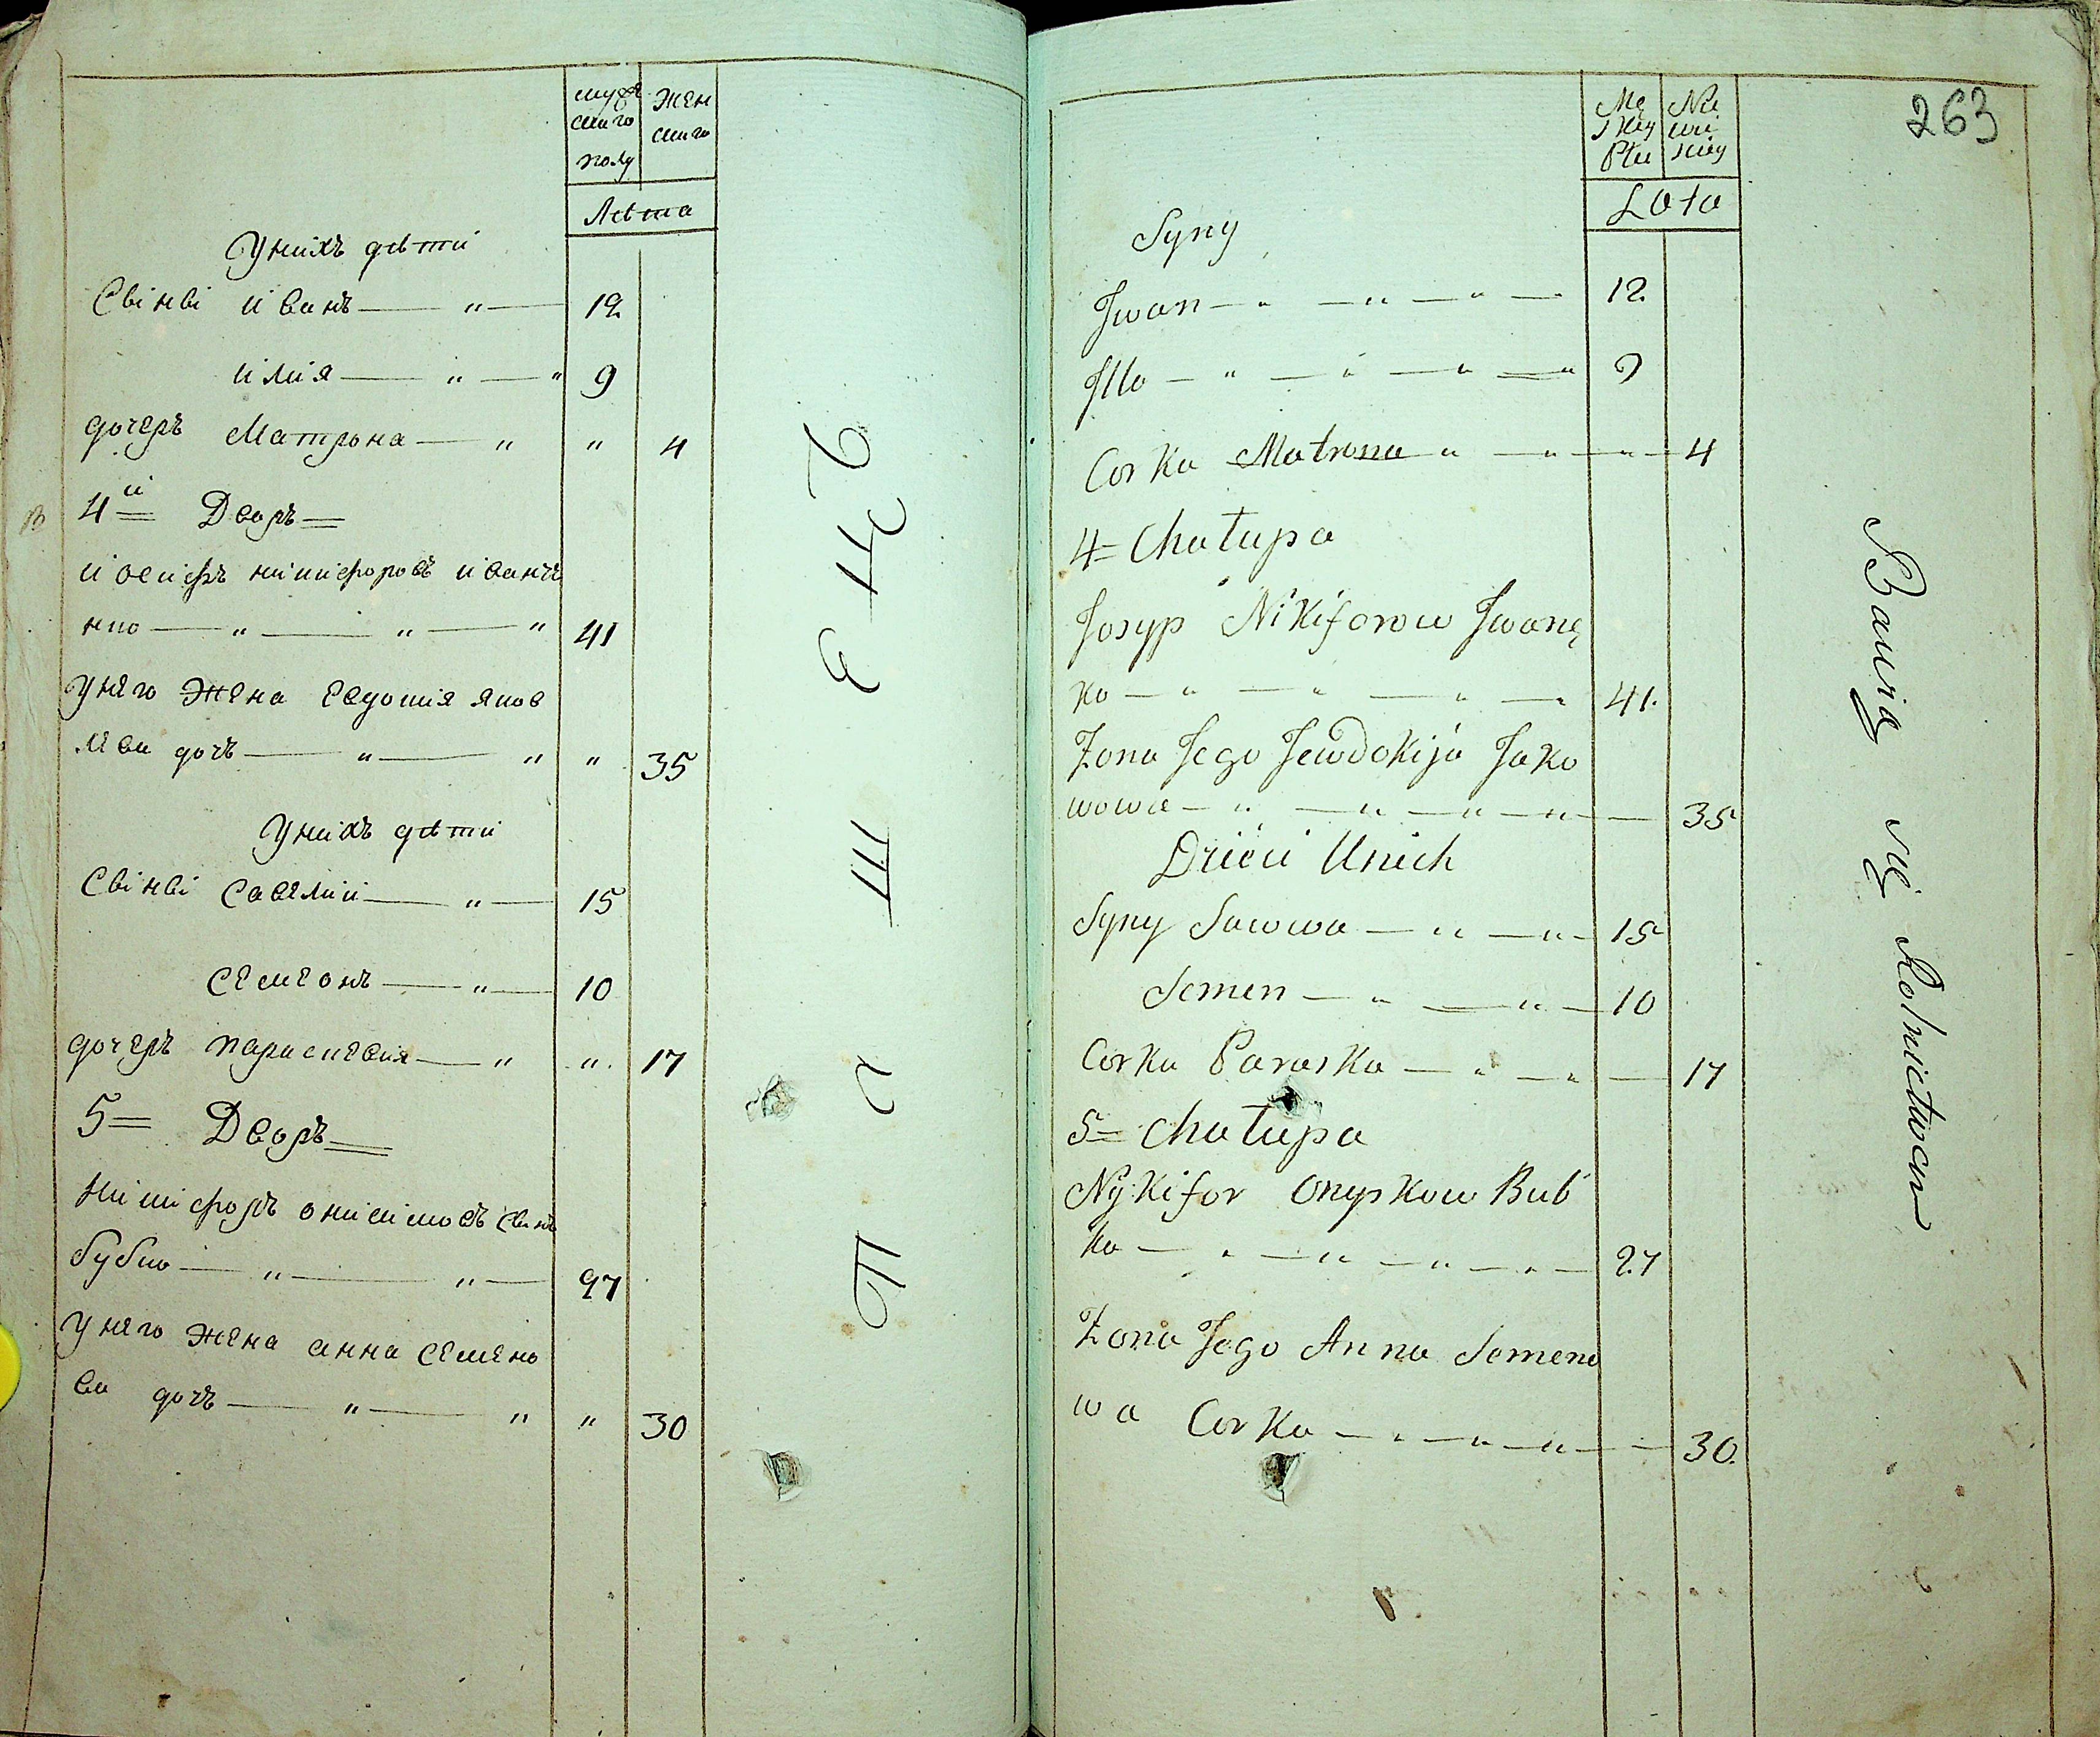 мужескаго полу
женскаго
Лѣта
У нихъ дѣти
Сыны Иванъ — " — 12
илия — " — " 9
дочеръ Матрона — " " 4
4й Дворъ
иосифъ никифоровъ иванч
нко — " — " — " 41
У него жена Евдокия яков
лева дочъ — " — " " 35
У нихъ дѣти
Сыны Савелий — " — 15
Семеонъ — " — 10
дочеръ параскевия — " " 17
5 Дворъ
Никифоръ онисимовъ сынъ
бубко — " — " — 27
У него жена анна семено
ва дочъ — " — " " 30
263
Mę
skey
Płci
Nie
wie
skiey
Lata
Syny
Jwan — " — " — " — 12
Jlla — " — " — " — " 9
Corka Matrona " — " — " — 4
4 = Chałupa
Josyp Nikiforow Jwanę
ko — " — " — " — " 41.
Żona Jego Jewdokija Jako
wowa — " — " — " — " — 35
Dzieci Unich
Syny Sawwa — " — " — 15
Semen — " — " — 10
Corka Paraska — " — " — 17
5 = Chałupa
Nykifor Onyskow Bub
ko — " — " — " — " — 27
Żona Jego Anna Semeno
wa Corka — " — " — " — 30.
Bawią się Rolnictwem